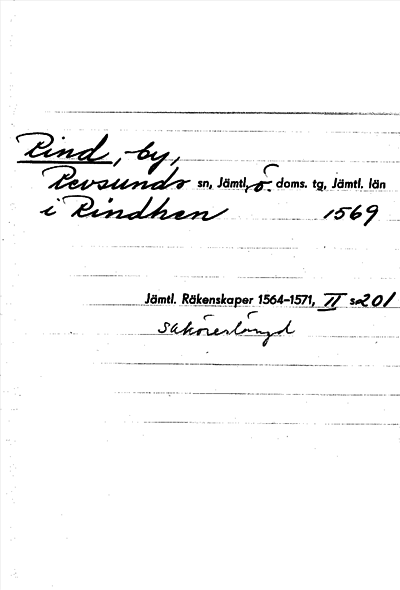 Rind, by,
Revsunds sn, Jämtl. ö. doms. tg, Jämtl. län
i Rindhen 1569
Jämtl. Räkenskaper 1564–1571, II s 201
Saköreslängd